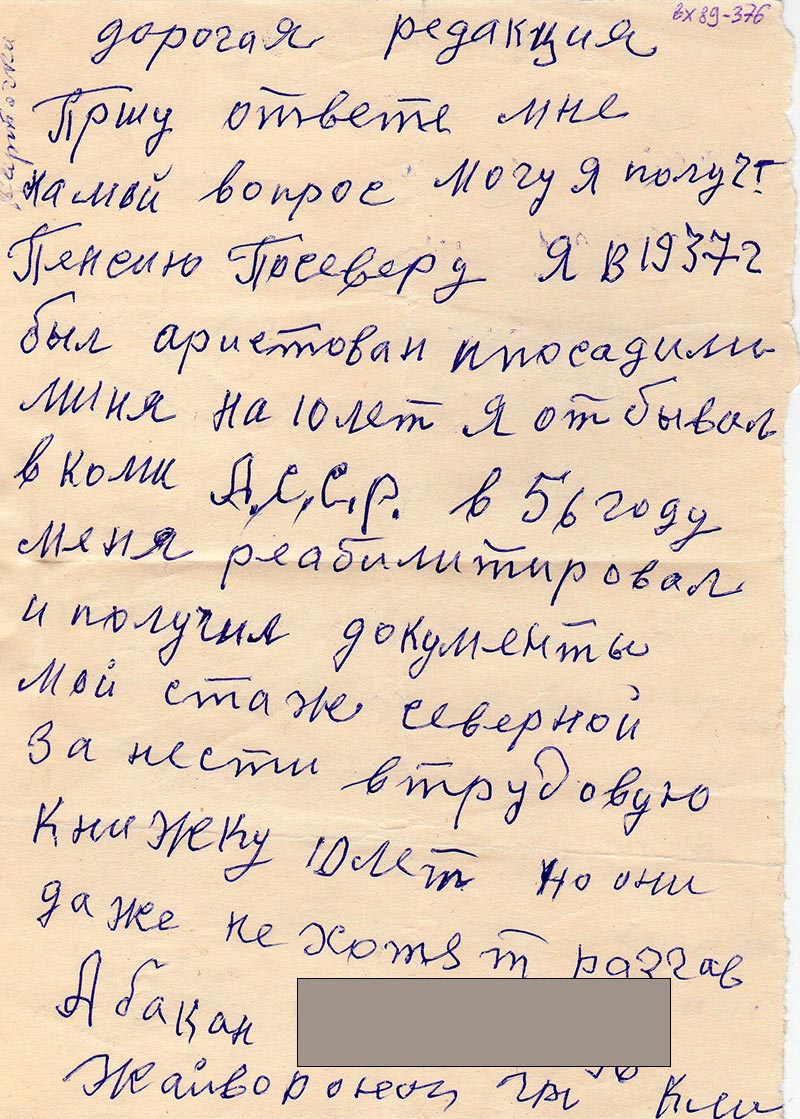 вх 89-376
дорогая редакция
Пршу ответе мне
на мой вопрос могу я получт
Пенсию Посеверу Я в 1937г
был аристован ипосадили
миня на 10 лет я отбывал
в коми А.С.С.р. в 56 году
меня реабилитировал
и получил документы
мой стаж северной
За нести втрудовую
Книжку 10 лет но они
даже не хотят
Абакан